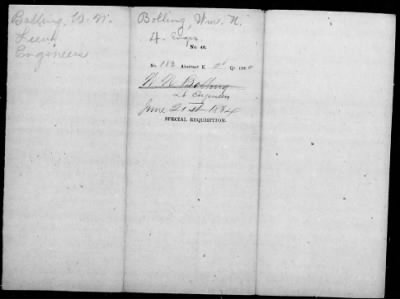 Bolling, W. N.
Lieut
Engineers
Bolling, Wm. N.
No. 40.
No. 182 Abstract E. 2d Qr. 1864
W. N. Bolling
Lt Engineers
June 21st 1864
SPECIAL REQUISITION.